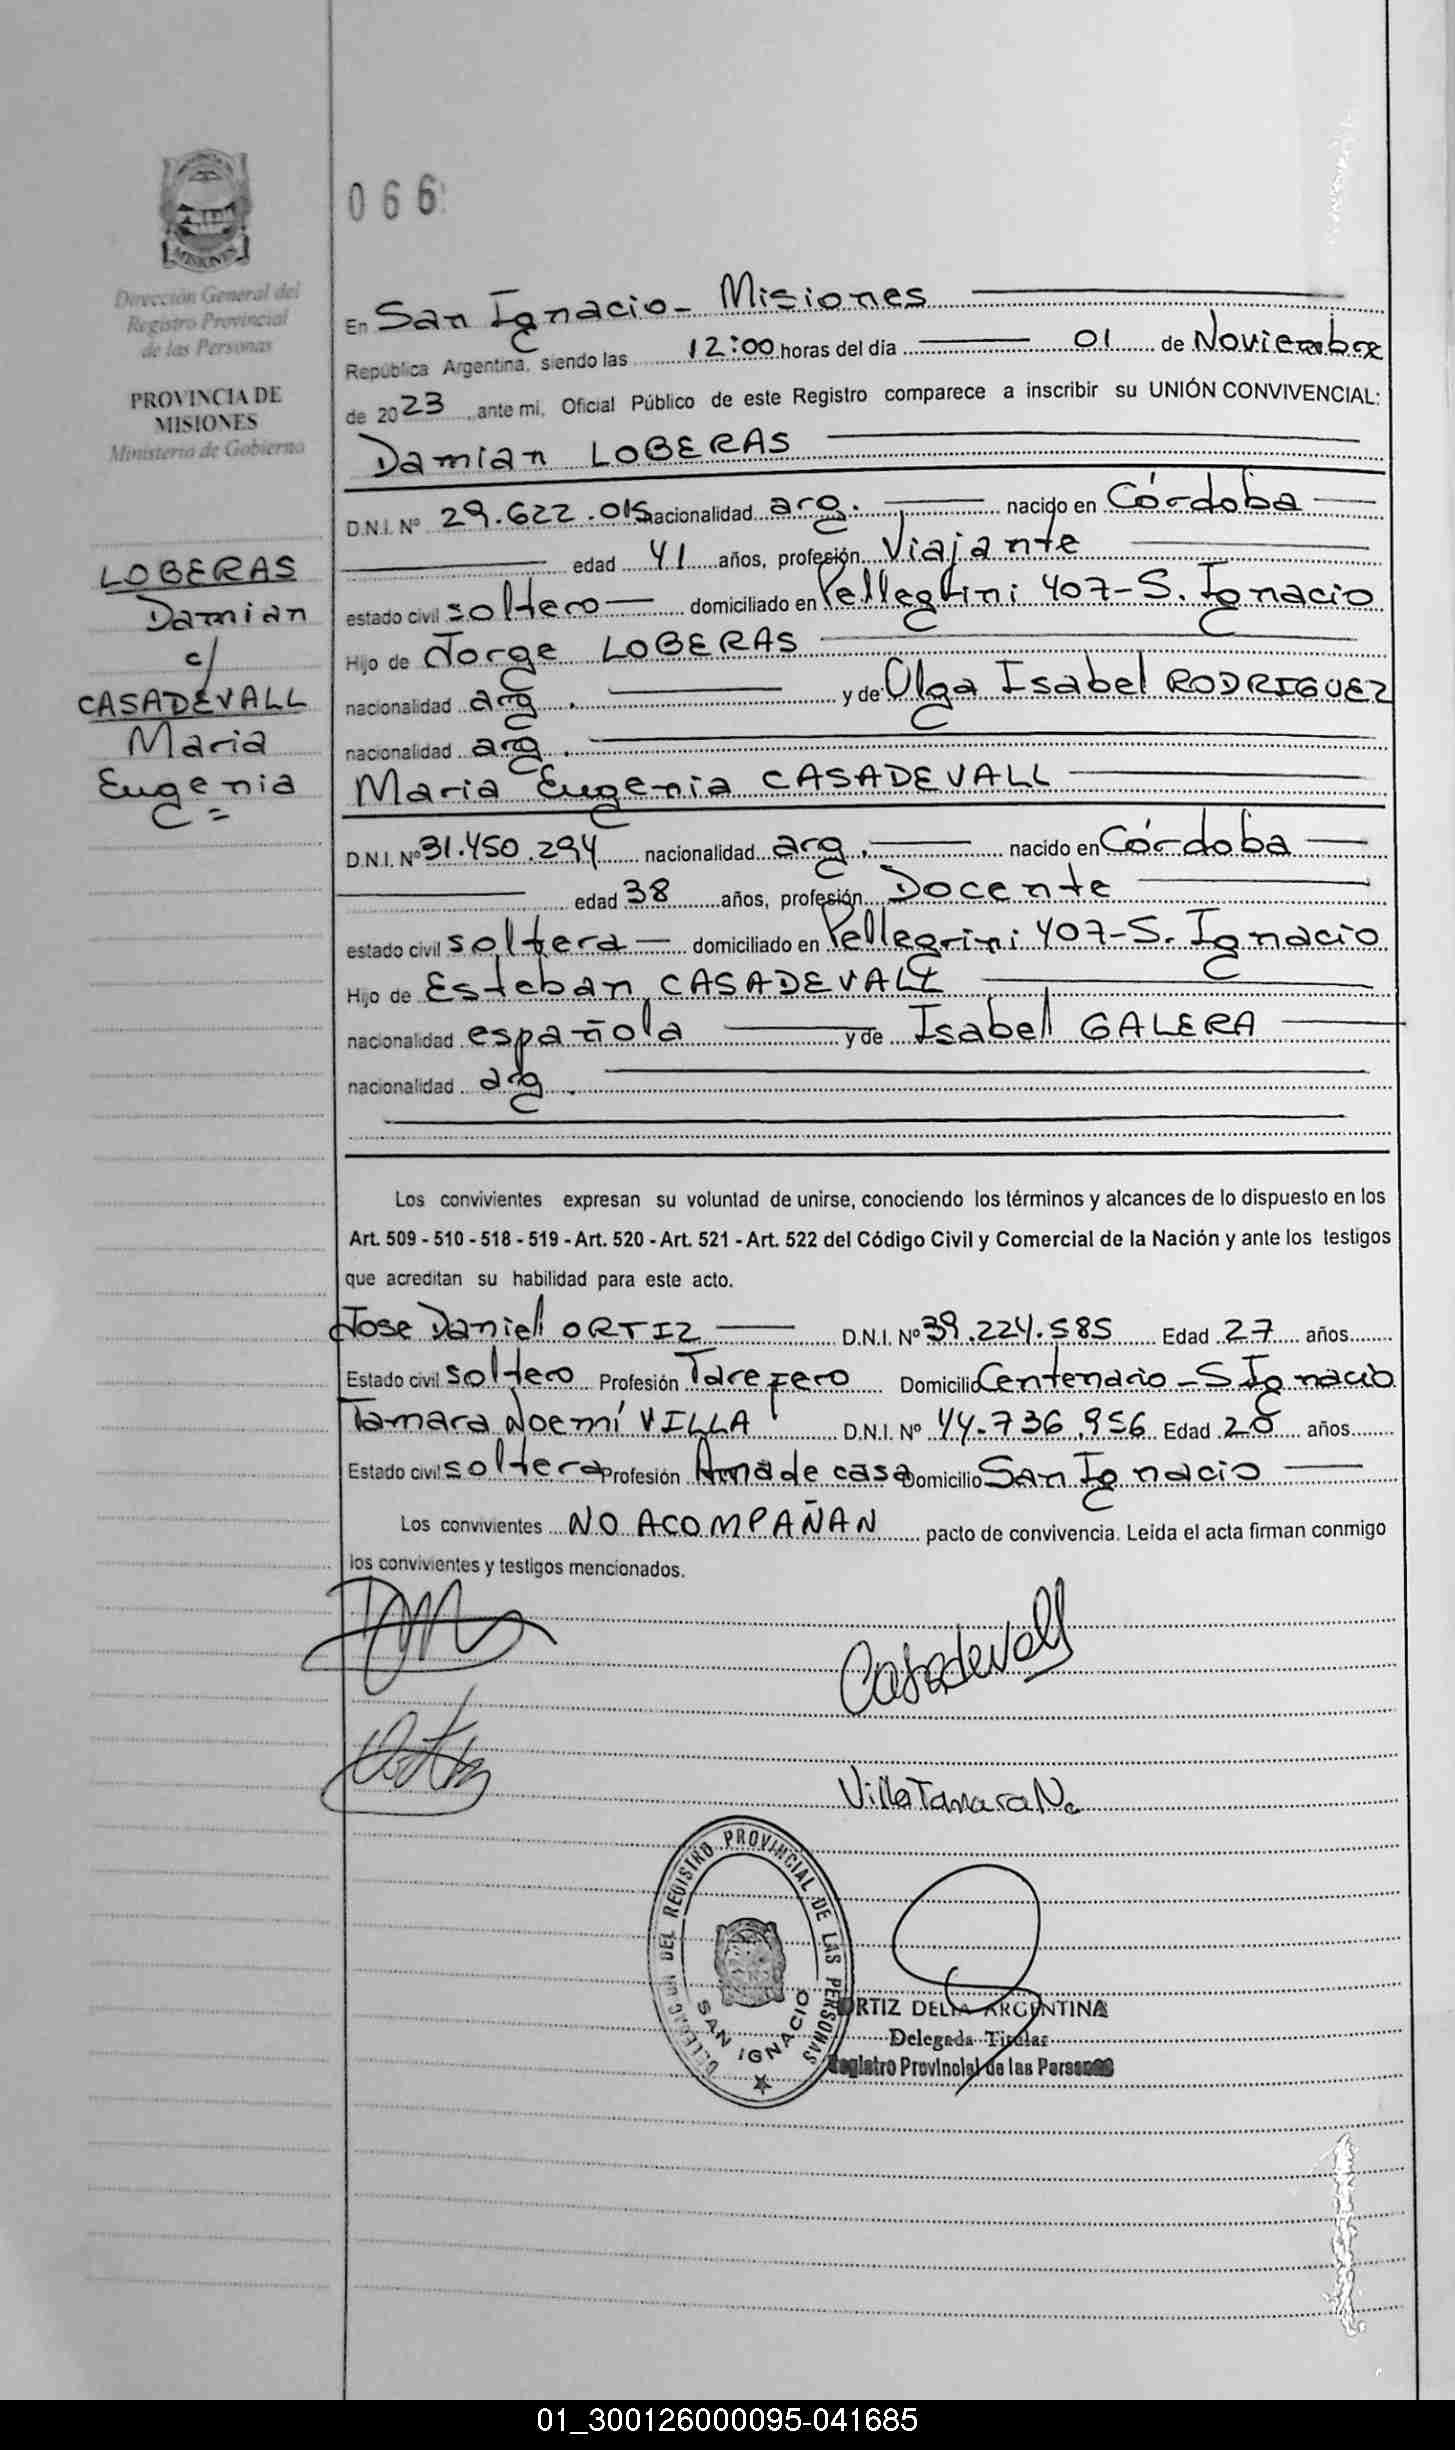 MISIONES
Dirección General del
Registro Provincial
de las Personas
PROVINCIA DE
MISIONES
Ministerio de Gobierno
LOBERAS
Damian
c/
CASADEVALL
Maria
Eugenia =
066
En San Ignacio - Misiones
República Argentina, siendo las 12:00 horas del día 01 de Noviembre
de 2023, ante mi, Oficial Público de este Registro comparece a inscribir su UNIÓN CONVIVENCIAL:
Damian LOBERAS
D.N.I. Nº 29.622.015 nacionalidad arg. nacido en Córdoba
edad 41 años, profesión Viajante
estado civil soltero domiciliado en Pellegrini 407-S. Ignacio
Hijo de Jorge LOBERAS
nacionalidad arg. y de Olga Isabel RODRIGUEZ
nacionalidad arg.
Maria Eugenia CASADEVALL
D.N.I. Nº 31.450.294 nacionalidad arg. nacido en Córdoba
edad 38 años, profesión Docente
estado civil soltera domiciliado en Pellegrini 407-S. Ignacio
Hijo de Esteban CASADEVALL
nacionalidad española y de Isabel GALERA
nacionalidad arg.
Los convivientes expresan su voluntad de unirse, conociendo los términos y alcances de lo dispuesto en los
Art. 509 - 510 - 518 - 519 - Art. 520 - Art. 521 - Art. 522 del Código Civil y Comercial de la Nación y ante los testigos
que acreditan su habilidad para este acto.
Jose Daniel ORTIZ D.N.I. Nº 39.224.585 Edad 27 años
Estado civil soltero Profesión Tarefero Domicilio Centenario - S Ignacio
Tamara Noemí VILLA D.N.I. Nº 44.736.956 Edad 20 años
Estado civil soltera Profesión Ama de casa Domicilio San Ignacio
Los convivientes NO ACOMPAÑAN pacto de convivencia. Leída el acta firman conmigo
los convivientes y testigos mencionados.
Casadevall
Villa Tamara N.
DELEGACION DEL REGISTRO PROVINCIAL DE LAS PERSONAS
SAN IGNACIO
ORTIZ DELIA ARGENTINA
Delegada Titular
Registro Provincial de las Personas
01_300126000095-041685